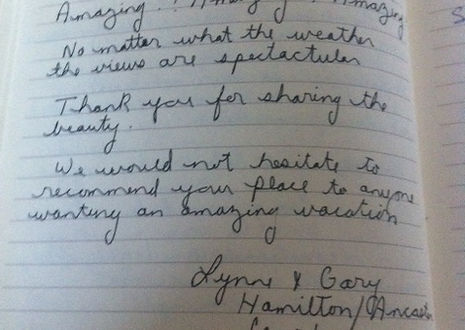 Amazing! Amazing! Amazing
No matter what the weather
the views are spectactular
Thank you for sharing the
beauty.
We would not hesitate to
recommend your place to anyone
wanting an amazing vacation
Lynne & Gary
Hamilton/Ancaster